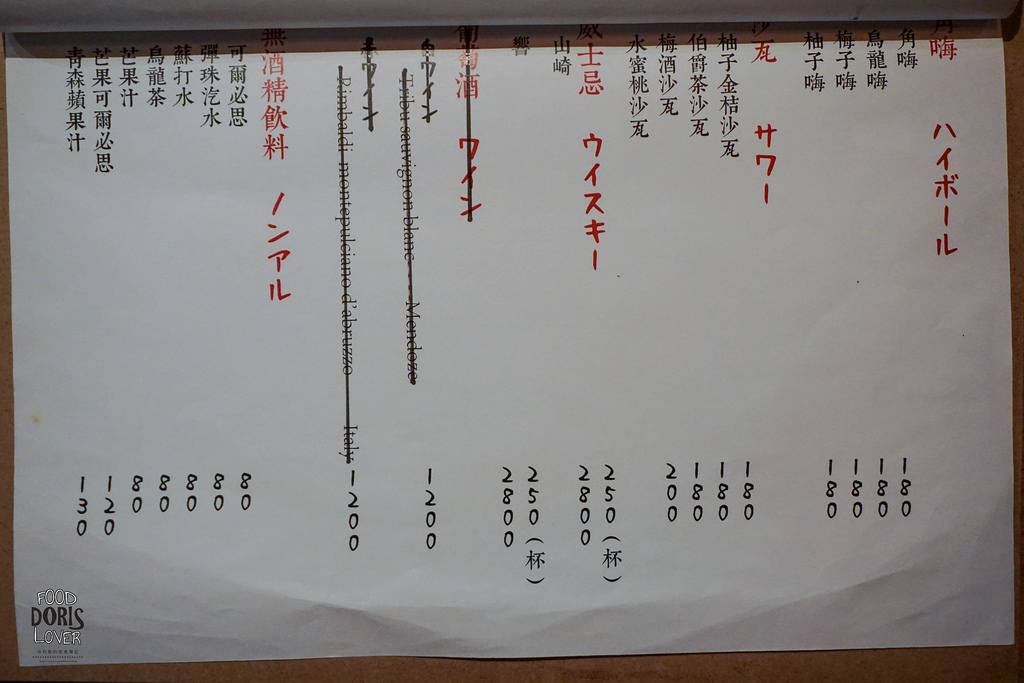 角嗨 ハイボール
角嗨 180
烏龍嗨 180
梅子嗨 180
柚子嗨 180
沙瓦 サワー
柚子金桔沙瓦 180
伯爵茶沙瓦 180
梅酒沙瓦 180
水蜜桃沙瓦 200
威士忌 ウイスキー
山崎 250（杯）
2800
響 250（杯）
2800
葡萄酒 ワイン
白ワイン
Tribu sauvignon blanc---Mendoze 1200
赤ワイン
Rimbaldi montepulciano d'abruzzo Italy 1200
無酒精飲料 ノンアル
可爾必思 80
彈珠汽水 80
蘇打水 80
烏龍茶 80
芒果汁 80
芒果可爾必思 120
青森蘋果汁 130
FOOD
DORIS
LOVER